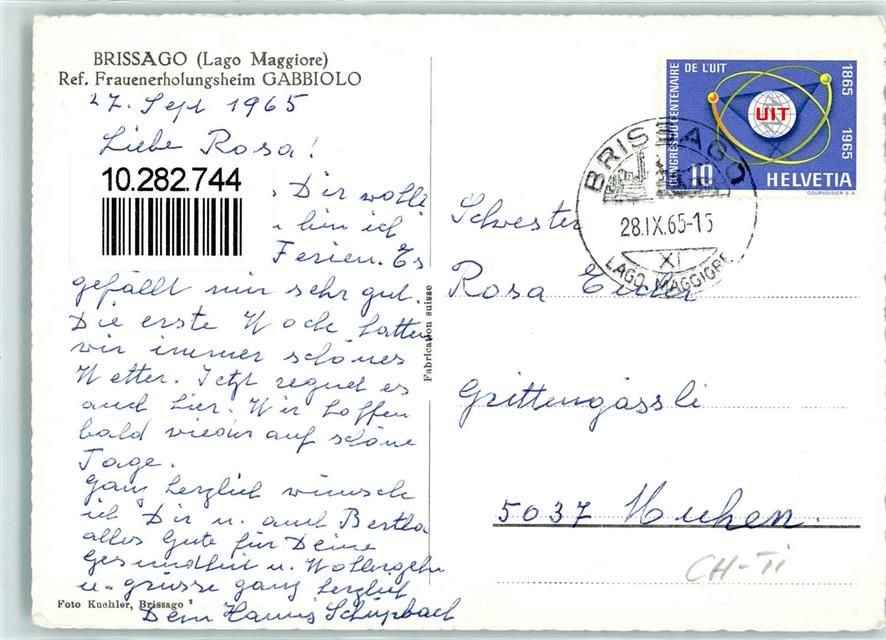 BRISSAGO (Lago Maggiore)
Ref. Frauenerholungsheim GABBIOLO
27. Sept 1965
Liebe Rosa!
10.282.744
Dir
bin ich
Ferien. Es
gefällt mir sehr gut.
Die erste Woche hatten
wir immer schönes
Wetter. Jetzt regnet es
auch hier. Wir hoffen
bald wieder auf schöne
Tage.
Ganz herzlich wünsche
ich Dir u. auch Bertha
alles Gute für Deine
Gesundheit u. Wohlergehn
u. grüsse ganz herzlich
Dein Hanns Schüpbach
Foto Kuehler, Brissago
Fabrication suisse
CONGRÈS DU CENTENAIRE DE L'UIT
1865 1965
UIT
10
HELVETIA
COURVOISIER S.A.
BRISSAGO
28.IX.65-15
XI
LAGO MAGGIORE
Schwester
Rosa
Grittengässli
5037 Muhen.
CH-Ti